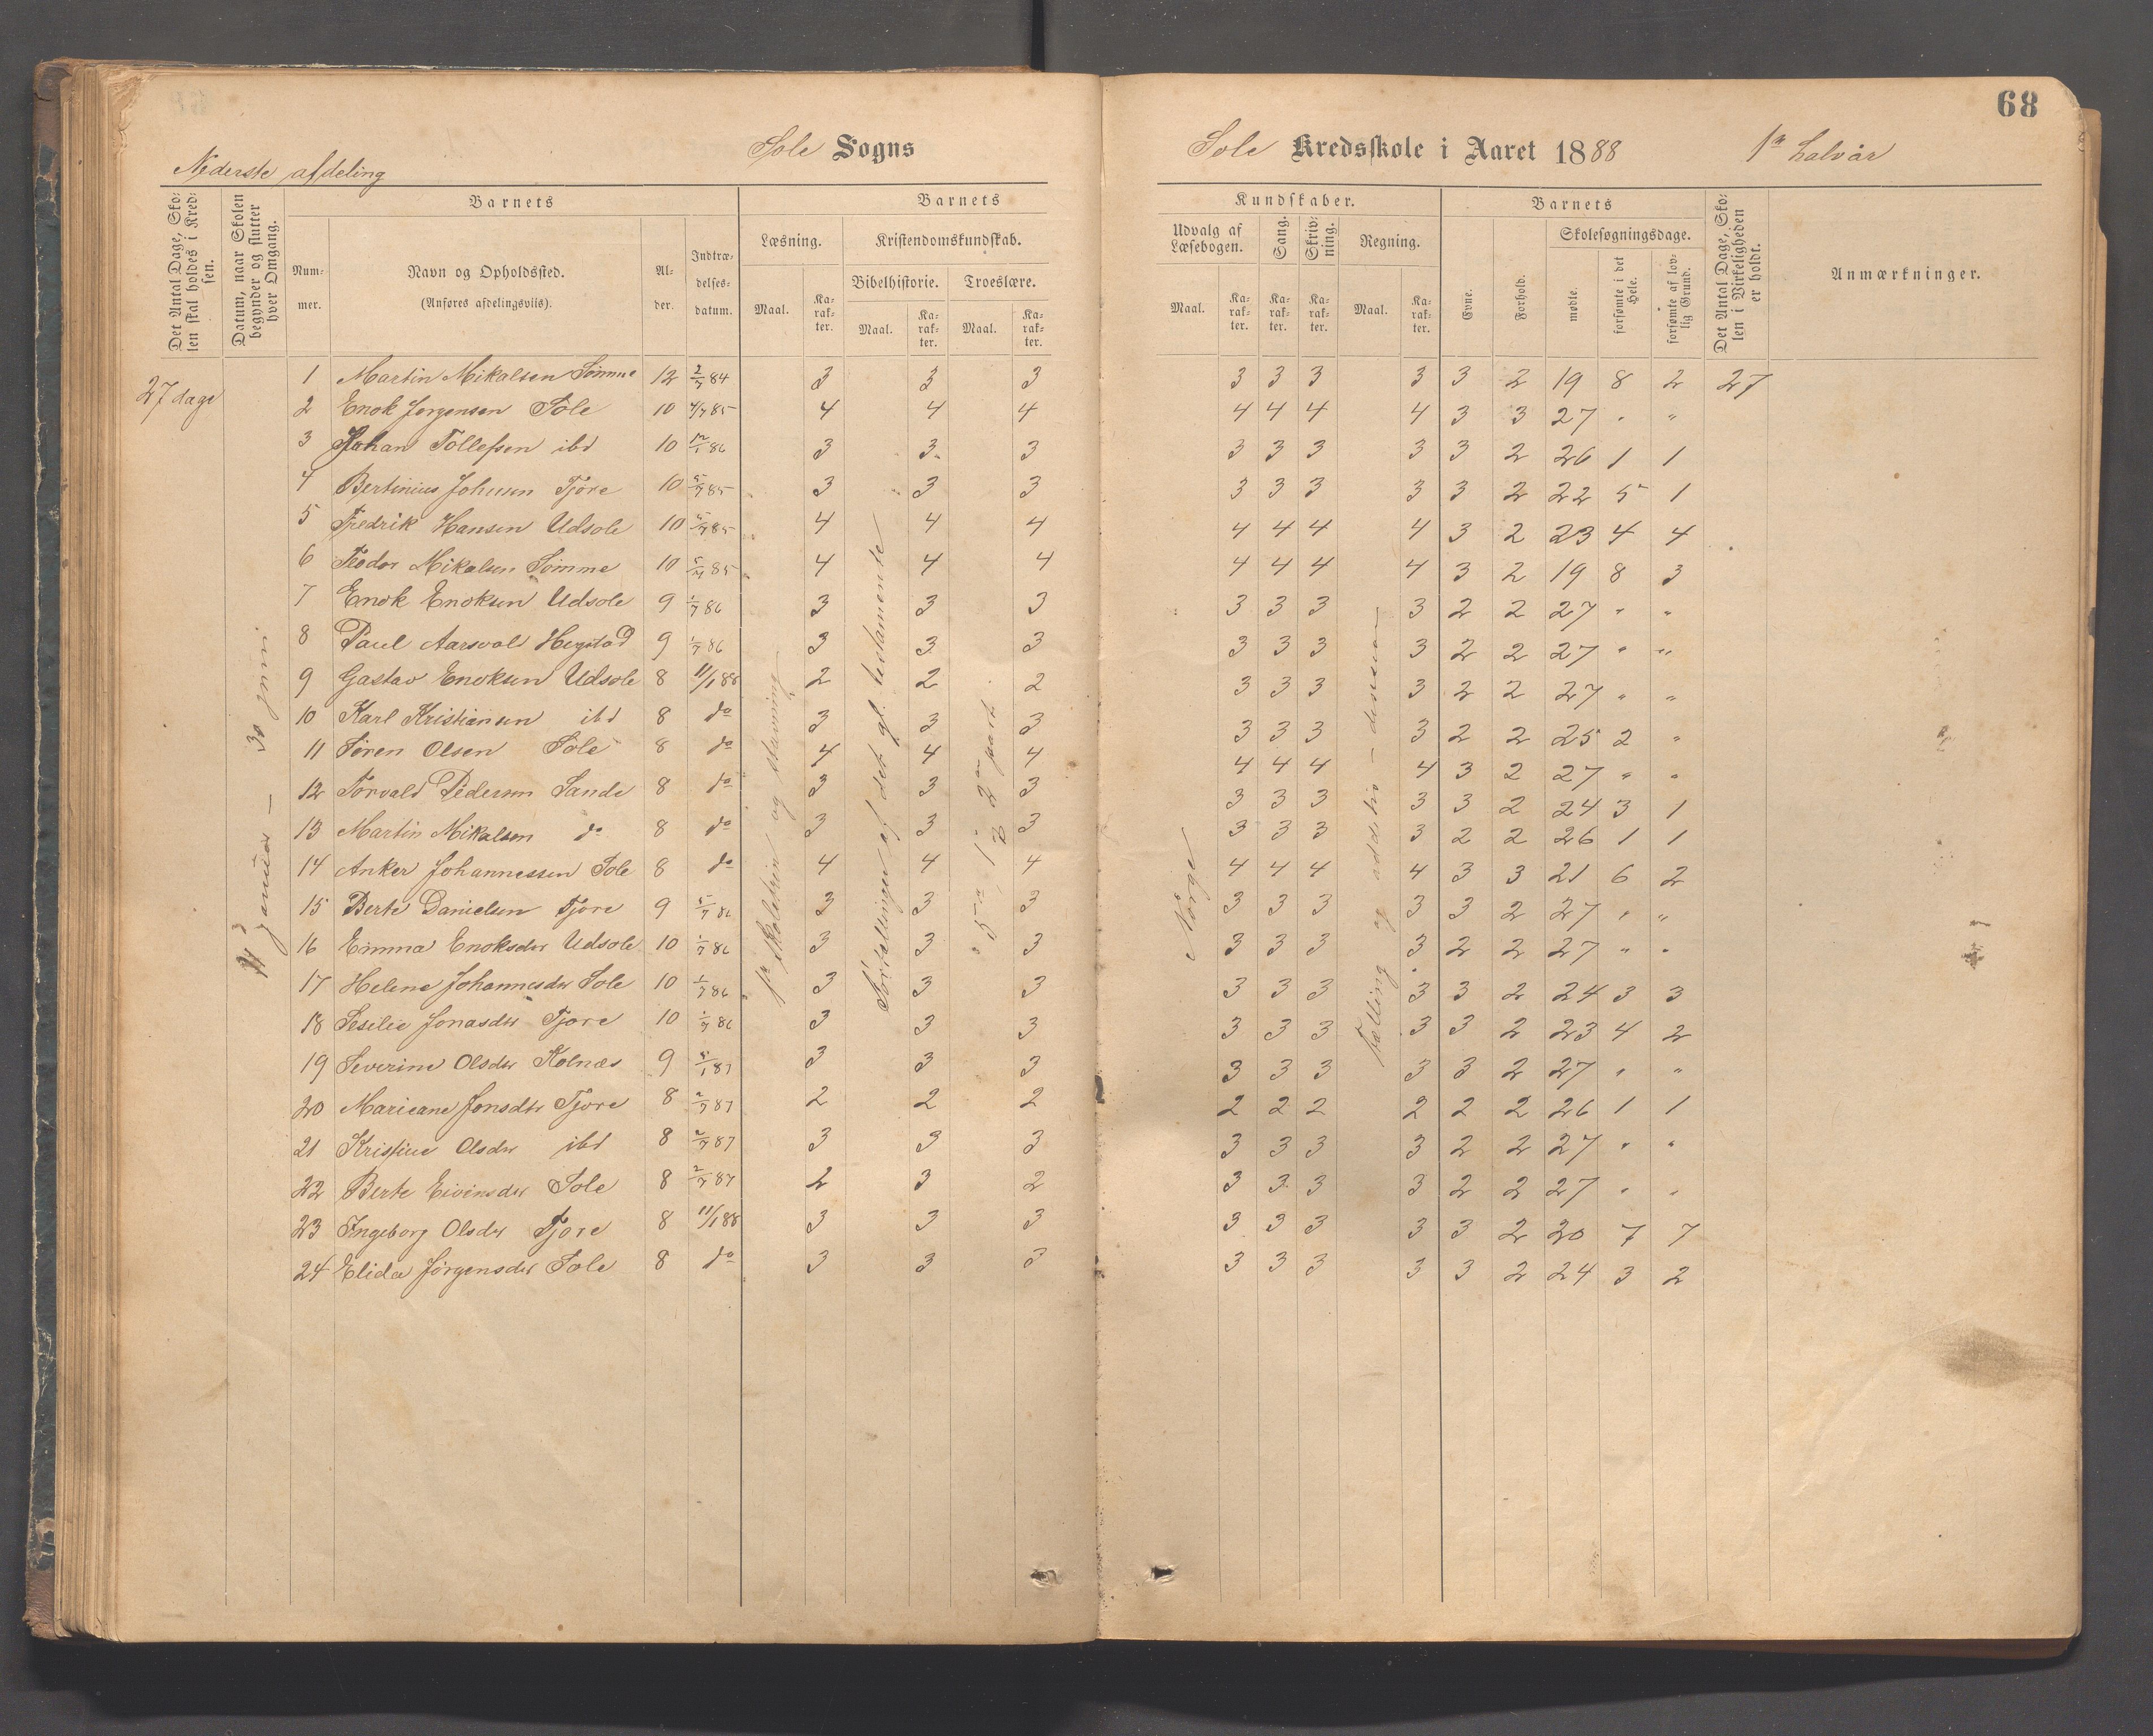 68
Nederste afdeling
Sole Sogns
Sole Kredsskole i Aaret 1888 1ste halvår
Det Antal Dage, Skolen skal holdes i Kredsen.
Datum, naar Skolen begynder og slutter hver Omgang.
Barnets
Nummer.
Navn og Opholdssted.
(Anføres afdelingsvis).
Alder.
Indtrædelsesdatum.
Barnets
Læsning.
Maal.
Karakter.
Kristendomskundskab.
Bibelhistorie.
Maal.
Karakter.
Troeslære.
Maal.
Karakter.
Kundskaber.
Udvalg af Læsebogen.
Maal.
Karakter.
Sang.
Karakter.
Skrivning.
Karakter.
Regning.
Maal.
Karakter.
Barnets
Evne.
Forhold.
Skolesøgningsdage.
mødte.
forsømte i det Hele.
forsømte af lovlig Grund.
Det Antal Dage, Skolen i Virkeligheden er holdt.
Anmærkninger.
27 dage
januar — 30 juni
1ste skoletrin og stavning
Fortællinger af det gl. testamente
Norge
Tælling og addition
1 Martin Mikalsen Sømme 12 2/7 84 3 3 3 3 3 3 3 3 2 19 8 2 27
2 Enok Jørgensen Sole 10 4/7 85 4 4 4 4 4 4 4 3 3 27 " "
3 Johan Tollefsen ibd 10 12/1 86 3 3 3 3 3 3 3 3 2 26 1 1
4 Bertinius Johnsen Tjore 10 5/7 85 3 3 3 3 3 3 3 3 2 22 5 1
5 Fredrik Hansen Udsole 10 5/7 85 4 4 4 4 4 4 4 3 2 23 4 4
6 Teodor Mikalsen Sømme 10 85 4 4 4 4 4 4 4 3 2 19 8 3
7 Enok Enoksen Udsole 9 1/7 86 3 3 3 3 3 3 3 2 2 27 " "
8 Paul Aarsvold Hegstad 9 1/7 86 3 3 3 3 3 3 3 2 2 27 " "
9 Gustav Enoksen Udsole 8 11/1 88 2 2 2 3 3 3 3 2 2 27 " "
10 Karl Kristiansen ibd 8 do 3 3 3 3 3 3 3 2 2 25 2 "
11 Søren Olsen Sole 8 do 4 4 4 4 4 4 4 3 2 27 " "
12 Torvald Pedersen Sande 8 do 3 3 3 3 3 3 3 3 2 24 3 1
13 Martin Mikalsen do 8 do 3 3 3 3 3 3 3 2 2 26 1 1
14 Anker Johannessen Sole 8 do 4 4 4 4 4 4 4 3 3 21 6 2
15 Berte Danielsen Tjore 9 5/7 86 3 3 3 3 3 3 3 3 2 27 " "
16 Emma Enoksdtr Udsole 10 1/7 86 3 3 3 3 3 3 3 2 2 27 " "
17 Helene Johannesdtr Sole 10 1/7 86 3 3 3 3 3 3 3 3 2 24 3 3
18 Sesilie Jonasdtr Tjore 10 1/7 86 3 3 3 3 3 3 3 3 2 23 4 2
19 Severine Olsdtr Kolnæs 9 5/1 87 3 3 3 3 3 3 3 3 2 27 " "
20 Mariane Jonsdtr Tjore 8 2/7 87 2 2 2 2 2 2 2 2 2 26 1 1
21 Kristine Olsdtr ibd 8 2/7 87 3 3 3 3 3 3 3 2 2 27 " "
22 Berte Eivinsdtr Sole 8 2/7 87 2 3 2 3 3 3 3 2 2 27 " "
23 Ingeborg Olsdtr Tjore 8 11/1 88 3 3 3 3 3 3 3 3 2 20 7 7
24 Elida Jørgensdtr Sole 8 do 3 3 3 3 3 3 3 3 2 24 3 2